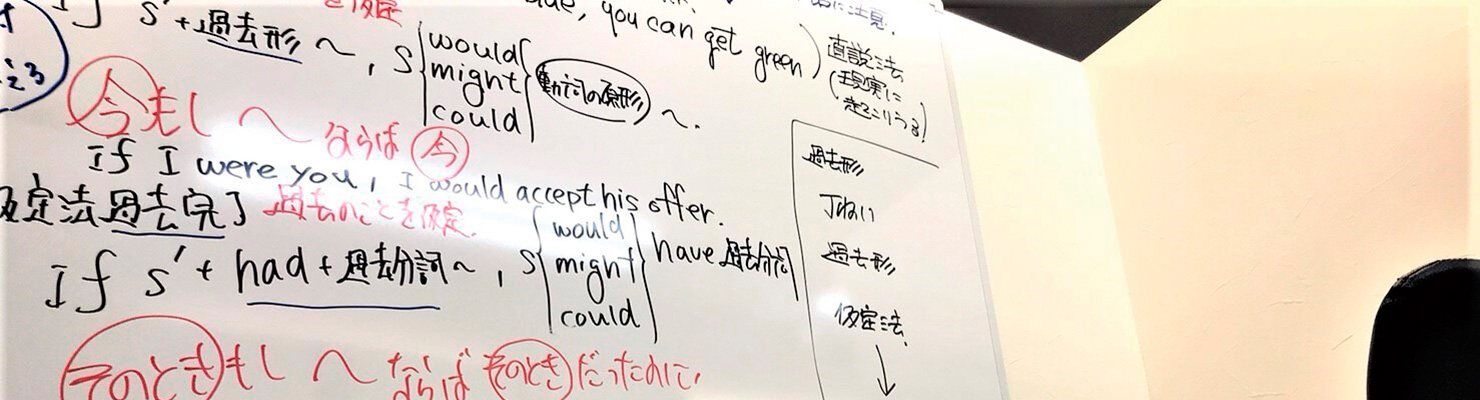 you can get green)
直説法
(現実に
起こりうる)
If S'+過去形〜, S{would might could}動詞の原形〜.
今もし〜ならば今
If I were you, I would accept his offer.
仮定法過去完了 過去のことを仮定.
If S'+had+過去分詞〜, S{would might could}have過去分詞
そのときもし〜ならばそのときだったのに,
過去形
丁ねい
過去形
仮定法
↓